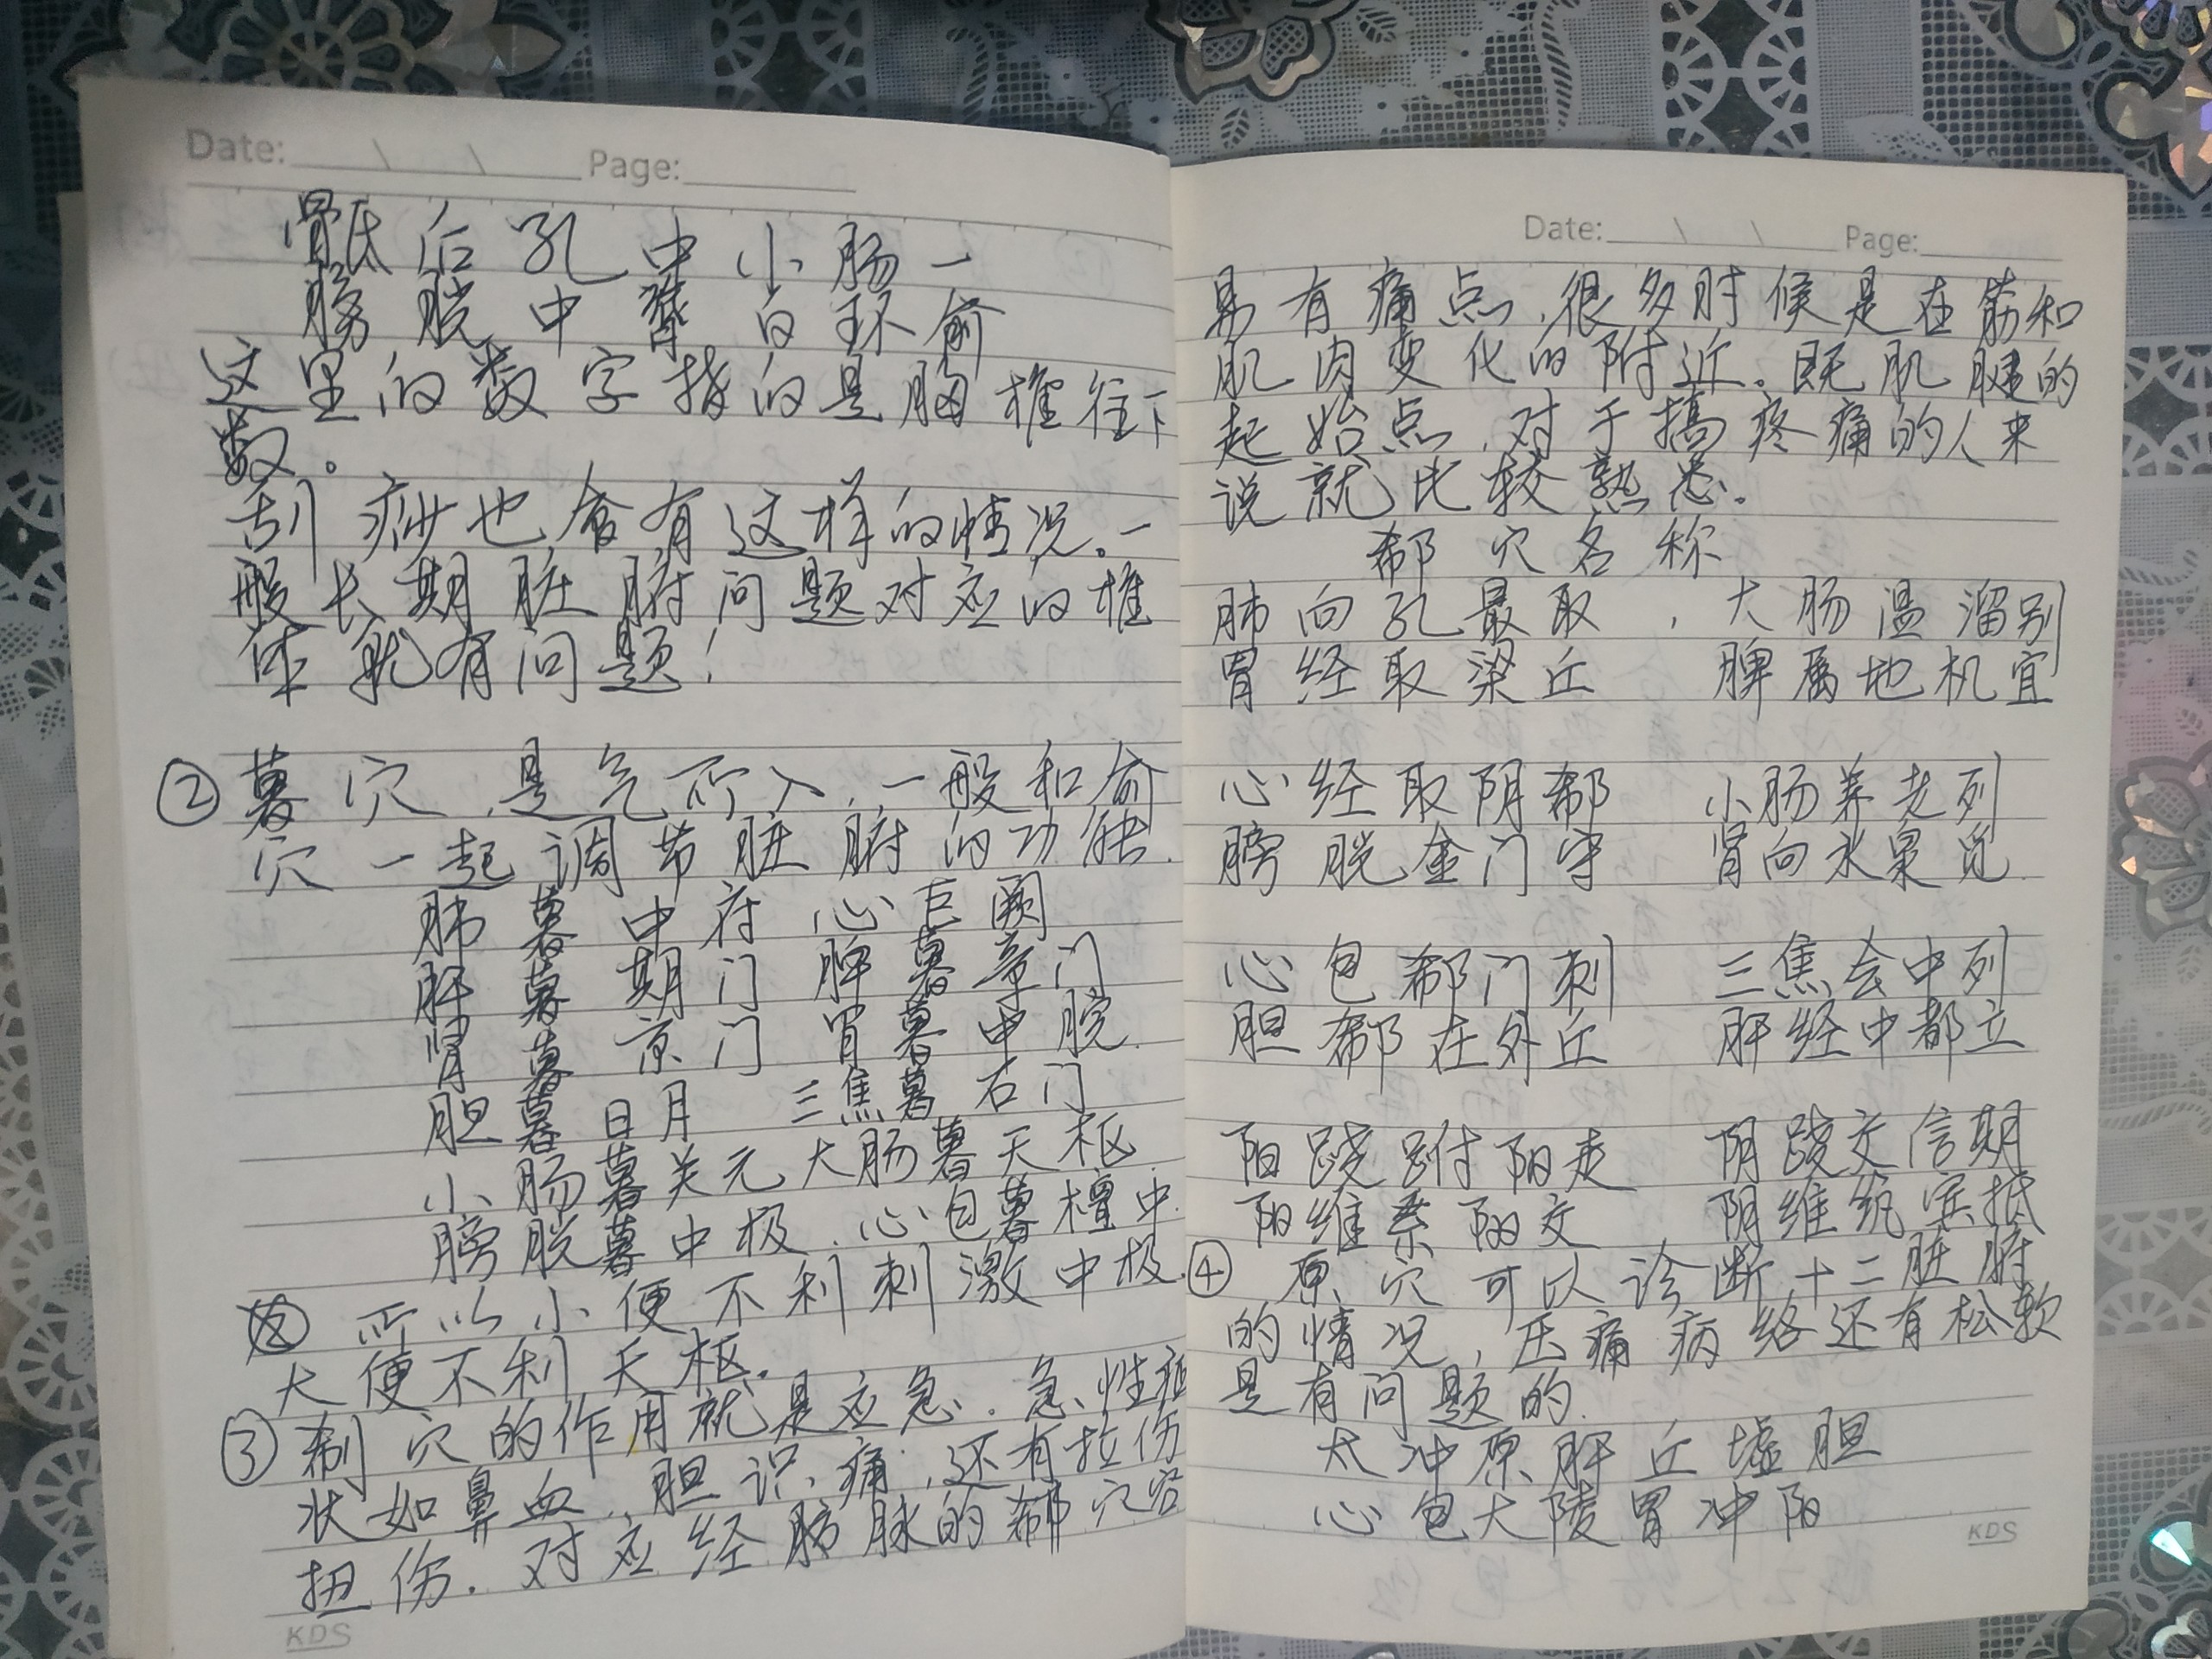 Date: Page:
骶后孔中小肠一
膀胱中膂白环俞
这里的数字指的是胸椎往下
数。
刮痧也会有这样的情况。一
般长期脏腑问题对应的椎
体就有问题！
② 募穴，是气所入，一般和俞
穴一起调节脏腑的功能.
肺募中府 心巨阙
肝募期门 脾募章门
肾募京门 胃募中脘.
胆募日月 三焦募石门
小肠募关元 大肠募天枢
膀胱募中极.心包募檀中.
所以小便不利刺激中极.
大便不利天枢.
③ 郄穴的作用就是应急.急性症
状如鼻血,胆识,痛,还有拉伤
扭伤.对应经脉的郄穴容
KDS
Date: Page:
易有痛点,很多时候是在筋和
肌肉变化的附近。既肌腱的
起始点,对于搞疼痛的人来
说就比较熟悉.
郄穴名称
肺向孔最取，大肠温溜别
胃经取梁丘 脾属地机宜
心经取阴郄 小肠养老列
膀胱金门守 肾向水泉觅
心包郄门刺 三焦会中列
胆郄在外丘 肝经中都立
阳跷跗阳走 阴跷交信期
阳维系阳交 阴维筑宾抵
④ 原穴可以诊断十二脏腑
的情况,压痛病络还有松软
是有问题的.
太冲原肝丘墟胆
心包大陵胃冲阳
KDS